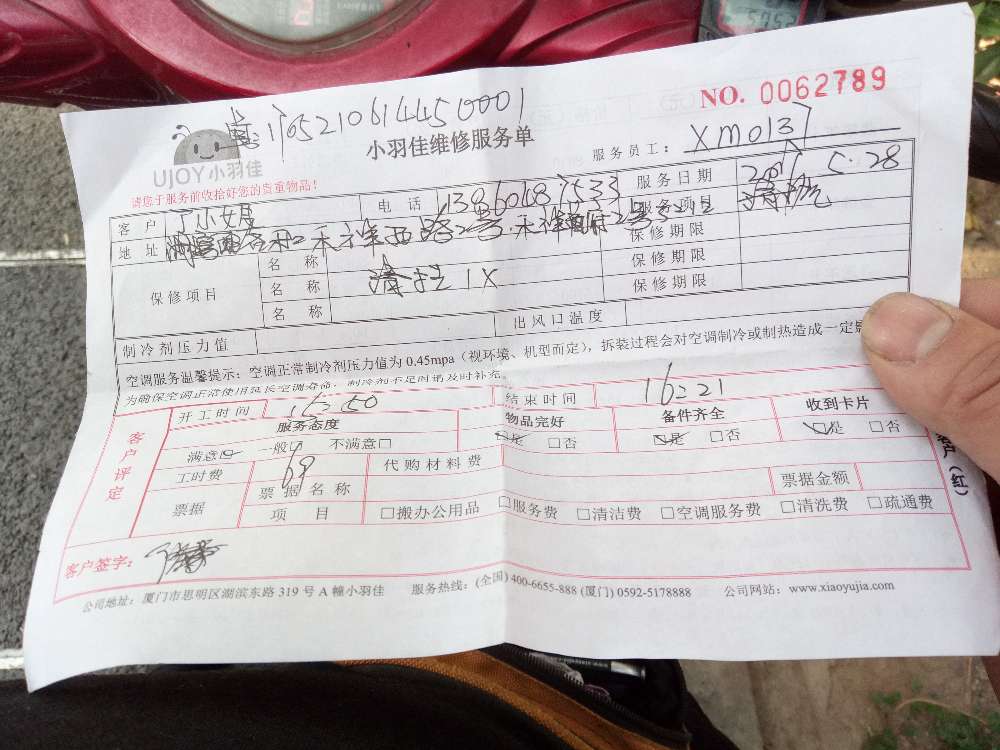 NO. 0062789
1705210614450001
UJOY小羽佳
小羽佳维修服务单
服务员工： XM0137
请您于服务前收拾好您的贵重物品！
客户 丁小姐 电话 服务日期 2016.5.28
地址 服务项目 清挖
保修项目 名称 保修期限
名称 清挂1X 保修期限
名称 保修期限
制冷剂压力值 出风口温度
空调服务温馨提示：空调正常制冷剂压力值为0.45mpa（视环境、机型而定），拆装过程会对空调制冷或制热造成一定影
为确保空调正常使用延长空调寿命，制冷剂不足时请及时补充。
客户评定
开工时间 结束时间 16:21
服务态度 物品完好 备件齐全 收到卡片
满意☑ 一般☐ 不满意☐ ☑是 ☐否 ☑是 ☐否 ☑是 ☐否
工时费 69 代购材料费
票据 票据名称 票据金额
项目 ☐搬办公用品 ☐服务费 ☐清洁费 ☐空调服务费 ☐清洗费 ☐疏通费
客户签字：
客户（红）
公司地址：厦门市思明区湖滨东路319号A幢小羽佳 服务热线：(全国) 400-6655-888 (厦门) 0592-5178888 公司网站：www.xiaoyujia.com